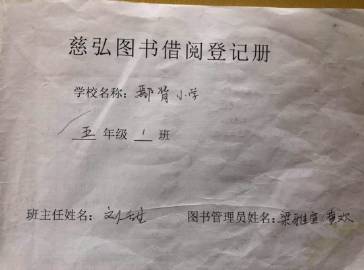 慈弘图书借阅登记册
学校名称：鄢背小学
五年级1班
班主任姓名：刘 图书管理员姓名：梁雅宣 黄欢